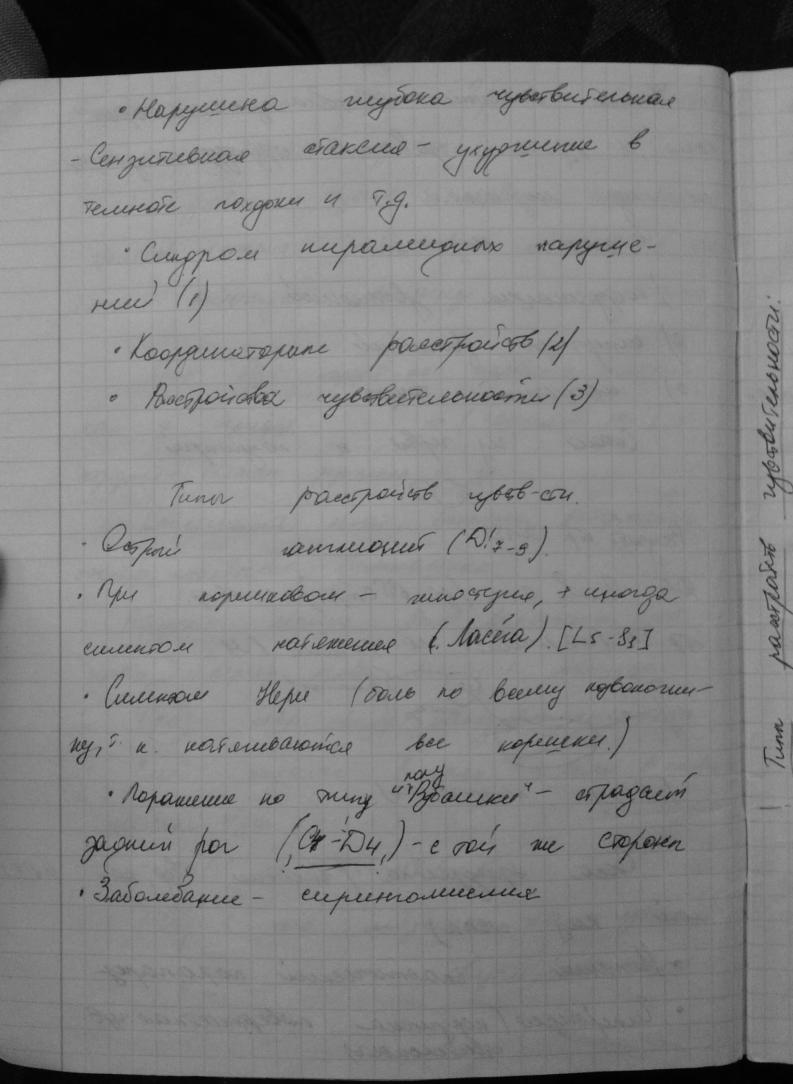 • Нарушена глубока чувствительная
- Сензитивная атаксия - ухудшение в
темноте походки и т.д.
• Синдром пирамидных наруше-
ний (1)
• Координаторные расстройств (2)
• Расстройства чувствительности (3)
Типы расстройств чувств-сти.
• Острый ганглионит (D!7-9).
• При корешковом - гипостезия, + иногда
симптом натяжения (с. Ласега). [L5-S1]
• Симптом Нери (боль по всему позвоночни-
ку, т. к. натягиваются все корешки.)
• Поражение по типу "полурубашки" - страдает
задний рог (-D4,) - с той же стороны
• Заболевание - сирингомиелия
! Типы расстройств чувствительности: